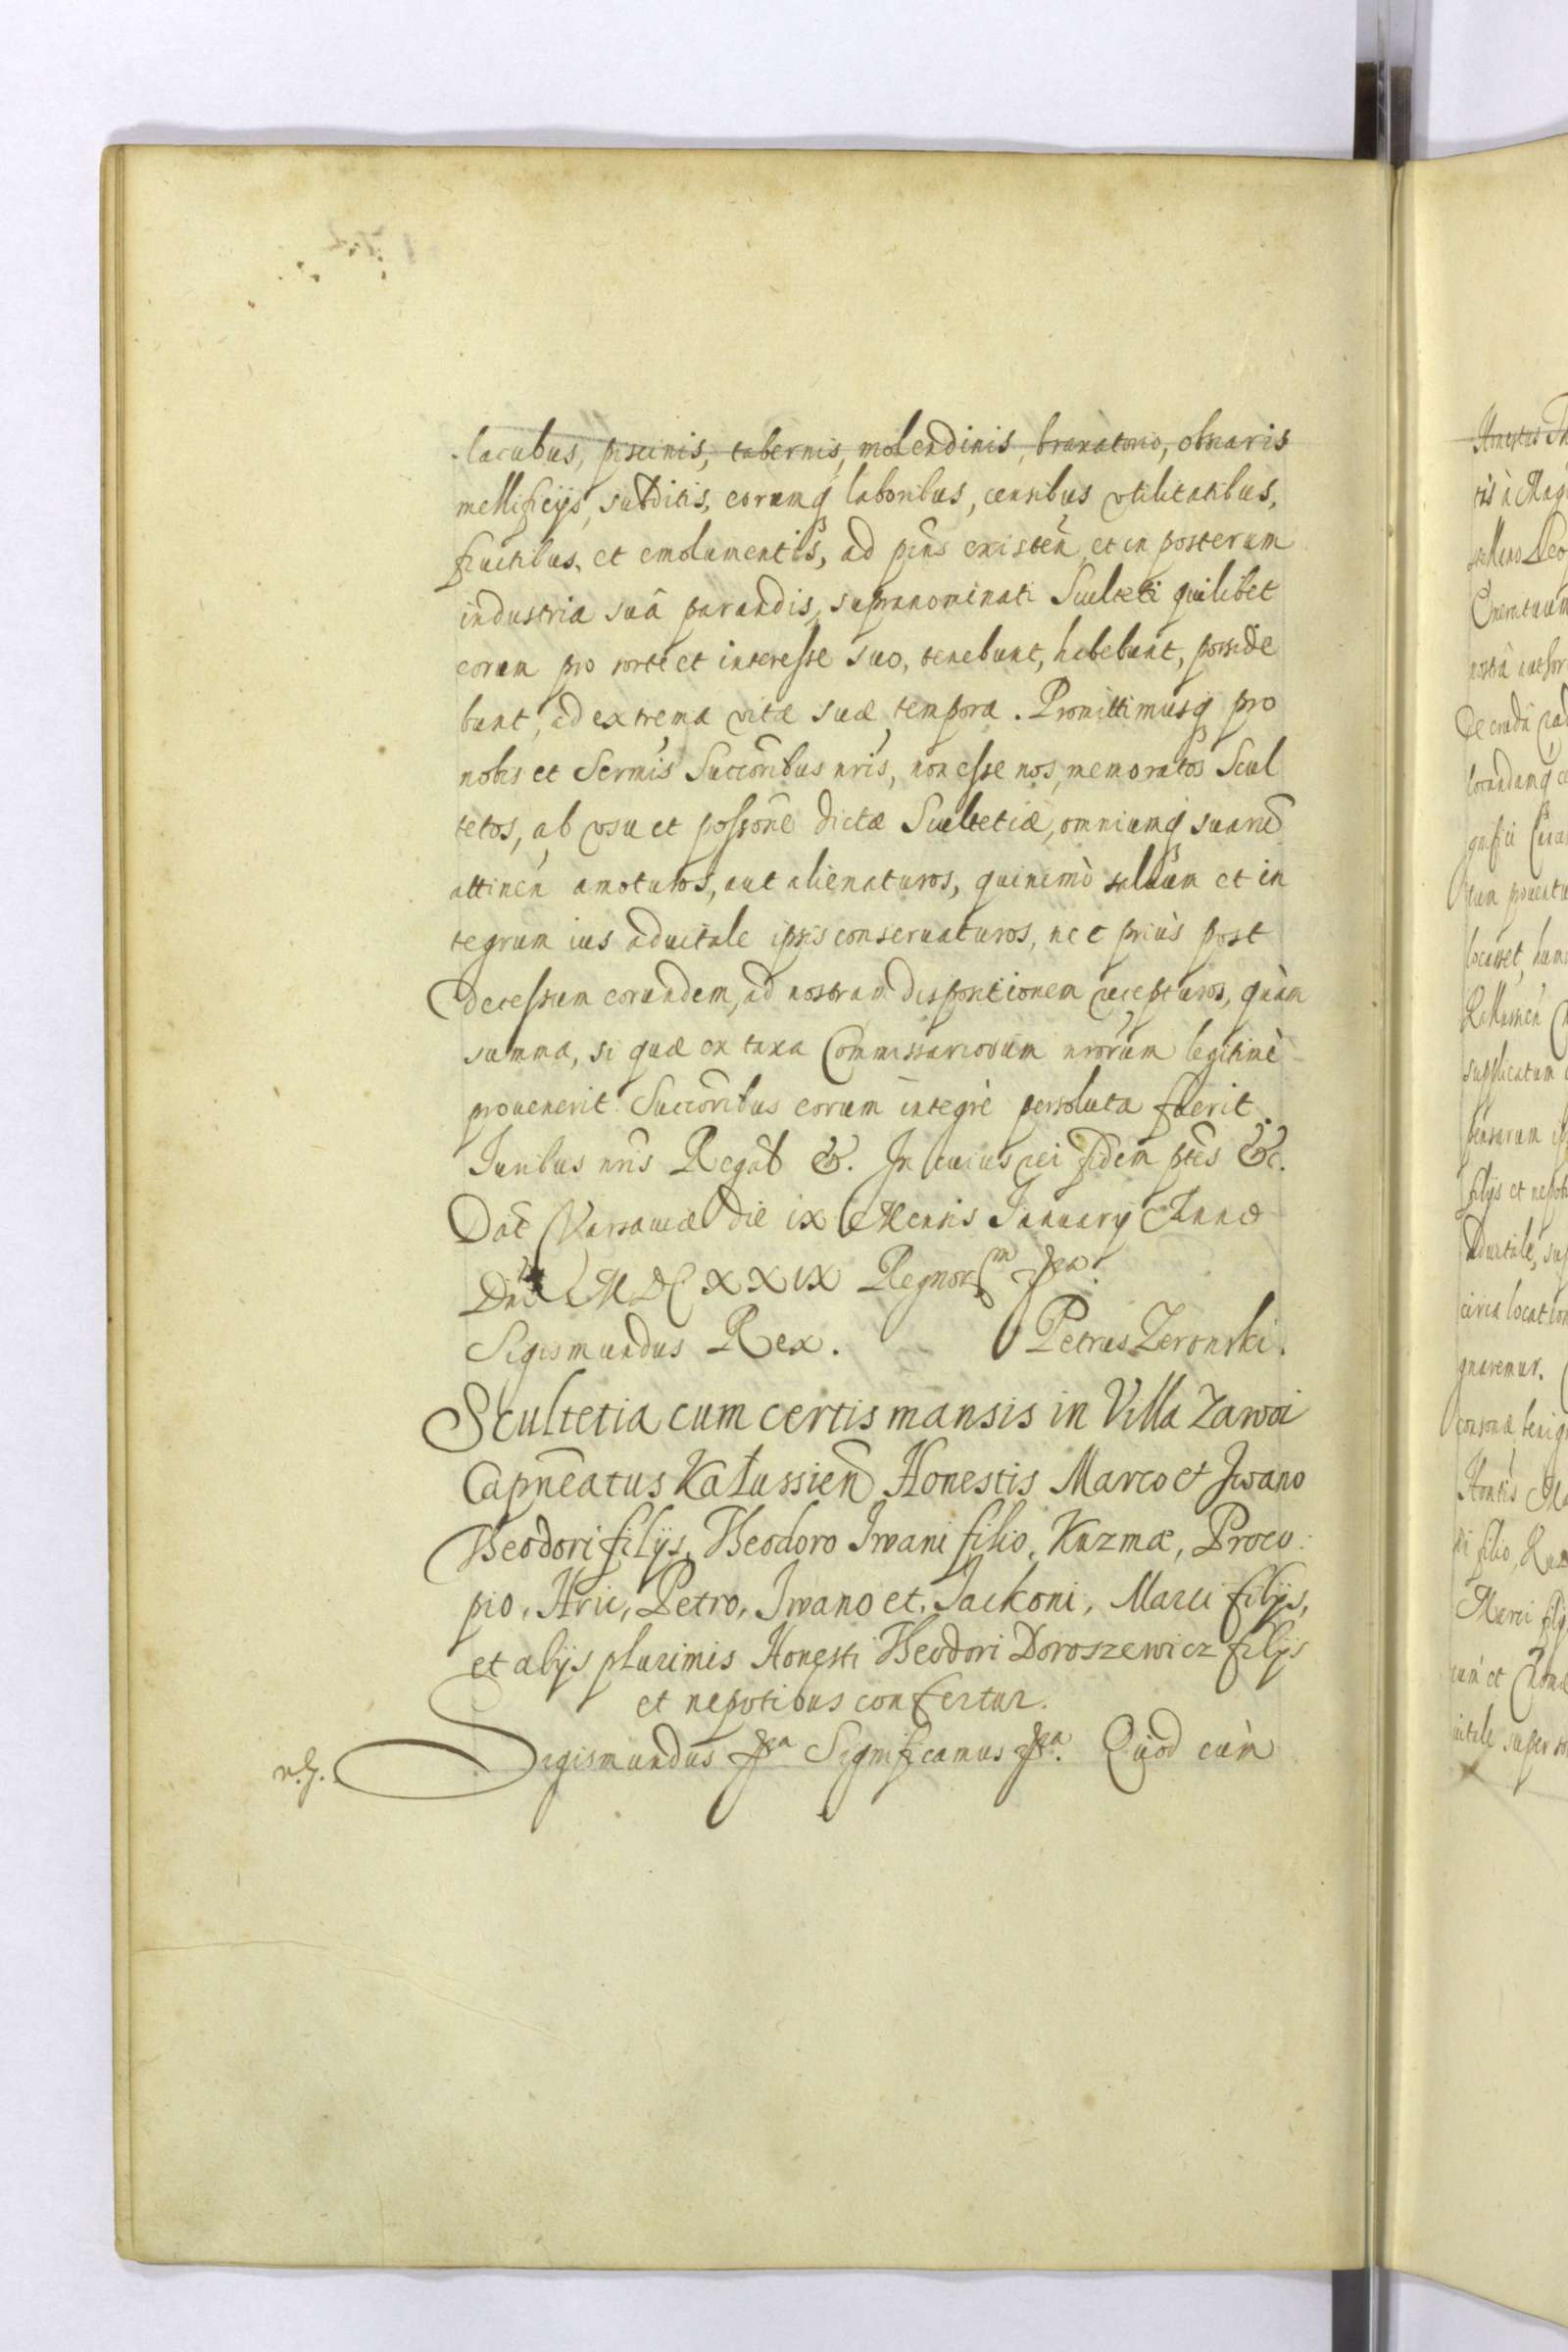 lacubus, piscinis, tabernis, molendinis, braxatorio, obnaris
mellificijs, subditis, eorumq laboribus, censibus vtilitatibus,
fructibus, et emolumentis, ad pñs existeñ et in posterum
industria suâ parandis, supranominati Sculteti quilibet
eorum pro sorte et interesse suo, tenebunt, habebunt, posside
bunt, ad extrema vitæ suæ tempora. Promittimusq pro
nobis et Sermis Succoribus nris, non esse nos, memoratos Scul
tetos, ab vsu et possone dictæ Scultetiæ, omniumq suarũ
attineñ amoturos, aut alienaturos, quinimò saluum et in
tegrum ius aduitale ipsis conseruaturos, nec priùs post
decessum eorundem, ad nostram dispositionem recepturos, quàm
summa, si quæ ex taxa Commissariorum nrorum legitimè
prouenerit Succoribus eorum integrè persoluta fuerit.
Iuribus nris Regal &. In cuius rei fidem ptes &c.
Dat Varsauiæ die ix Mensis Ianuarij Anno
Dni M DC XXIX Regnor m
Sigismundus Rex. Petrus Zeronski.
Scultetia cum certis mansis in Villa Zawoi
Capneatus Kałussień Honestis Marco et Iwano
Theodori filijs, Theodoro Iwani filio, Kuzmæ, Proco:
pio, Hric, Petro, Iwano et Jackoni, Marci filijs,
et alijs plurimis Honesti Theodori Doroszewicz filijs
et nepotibus confertur.
Sigismundus Significamus Quod cùm